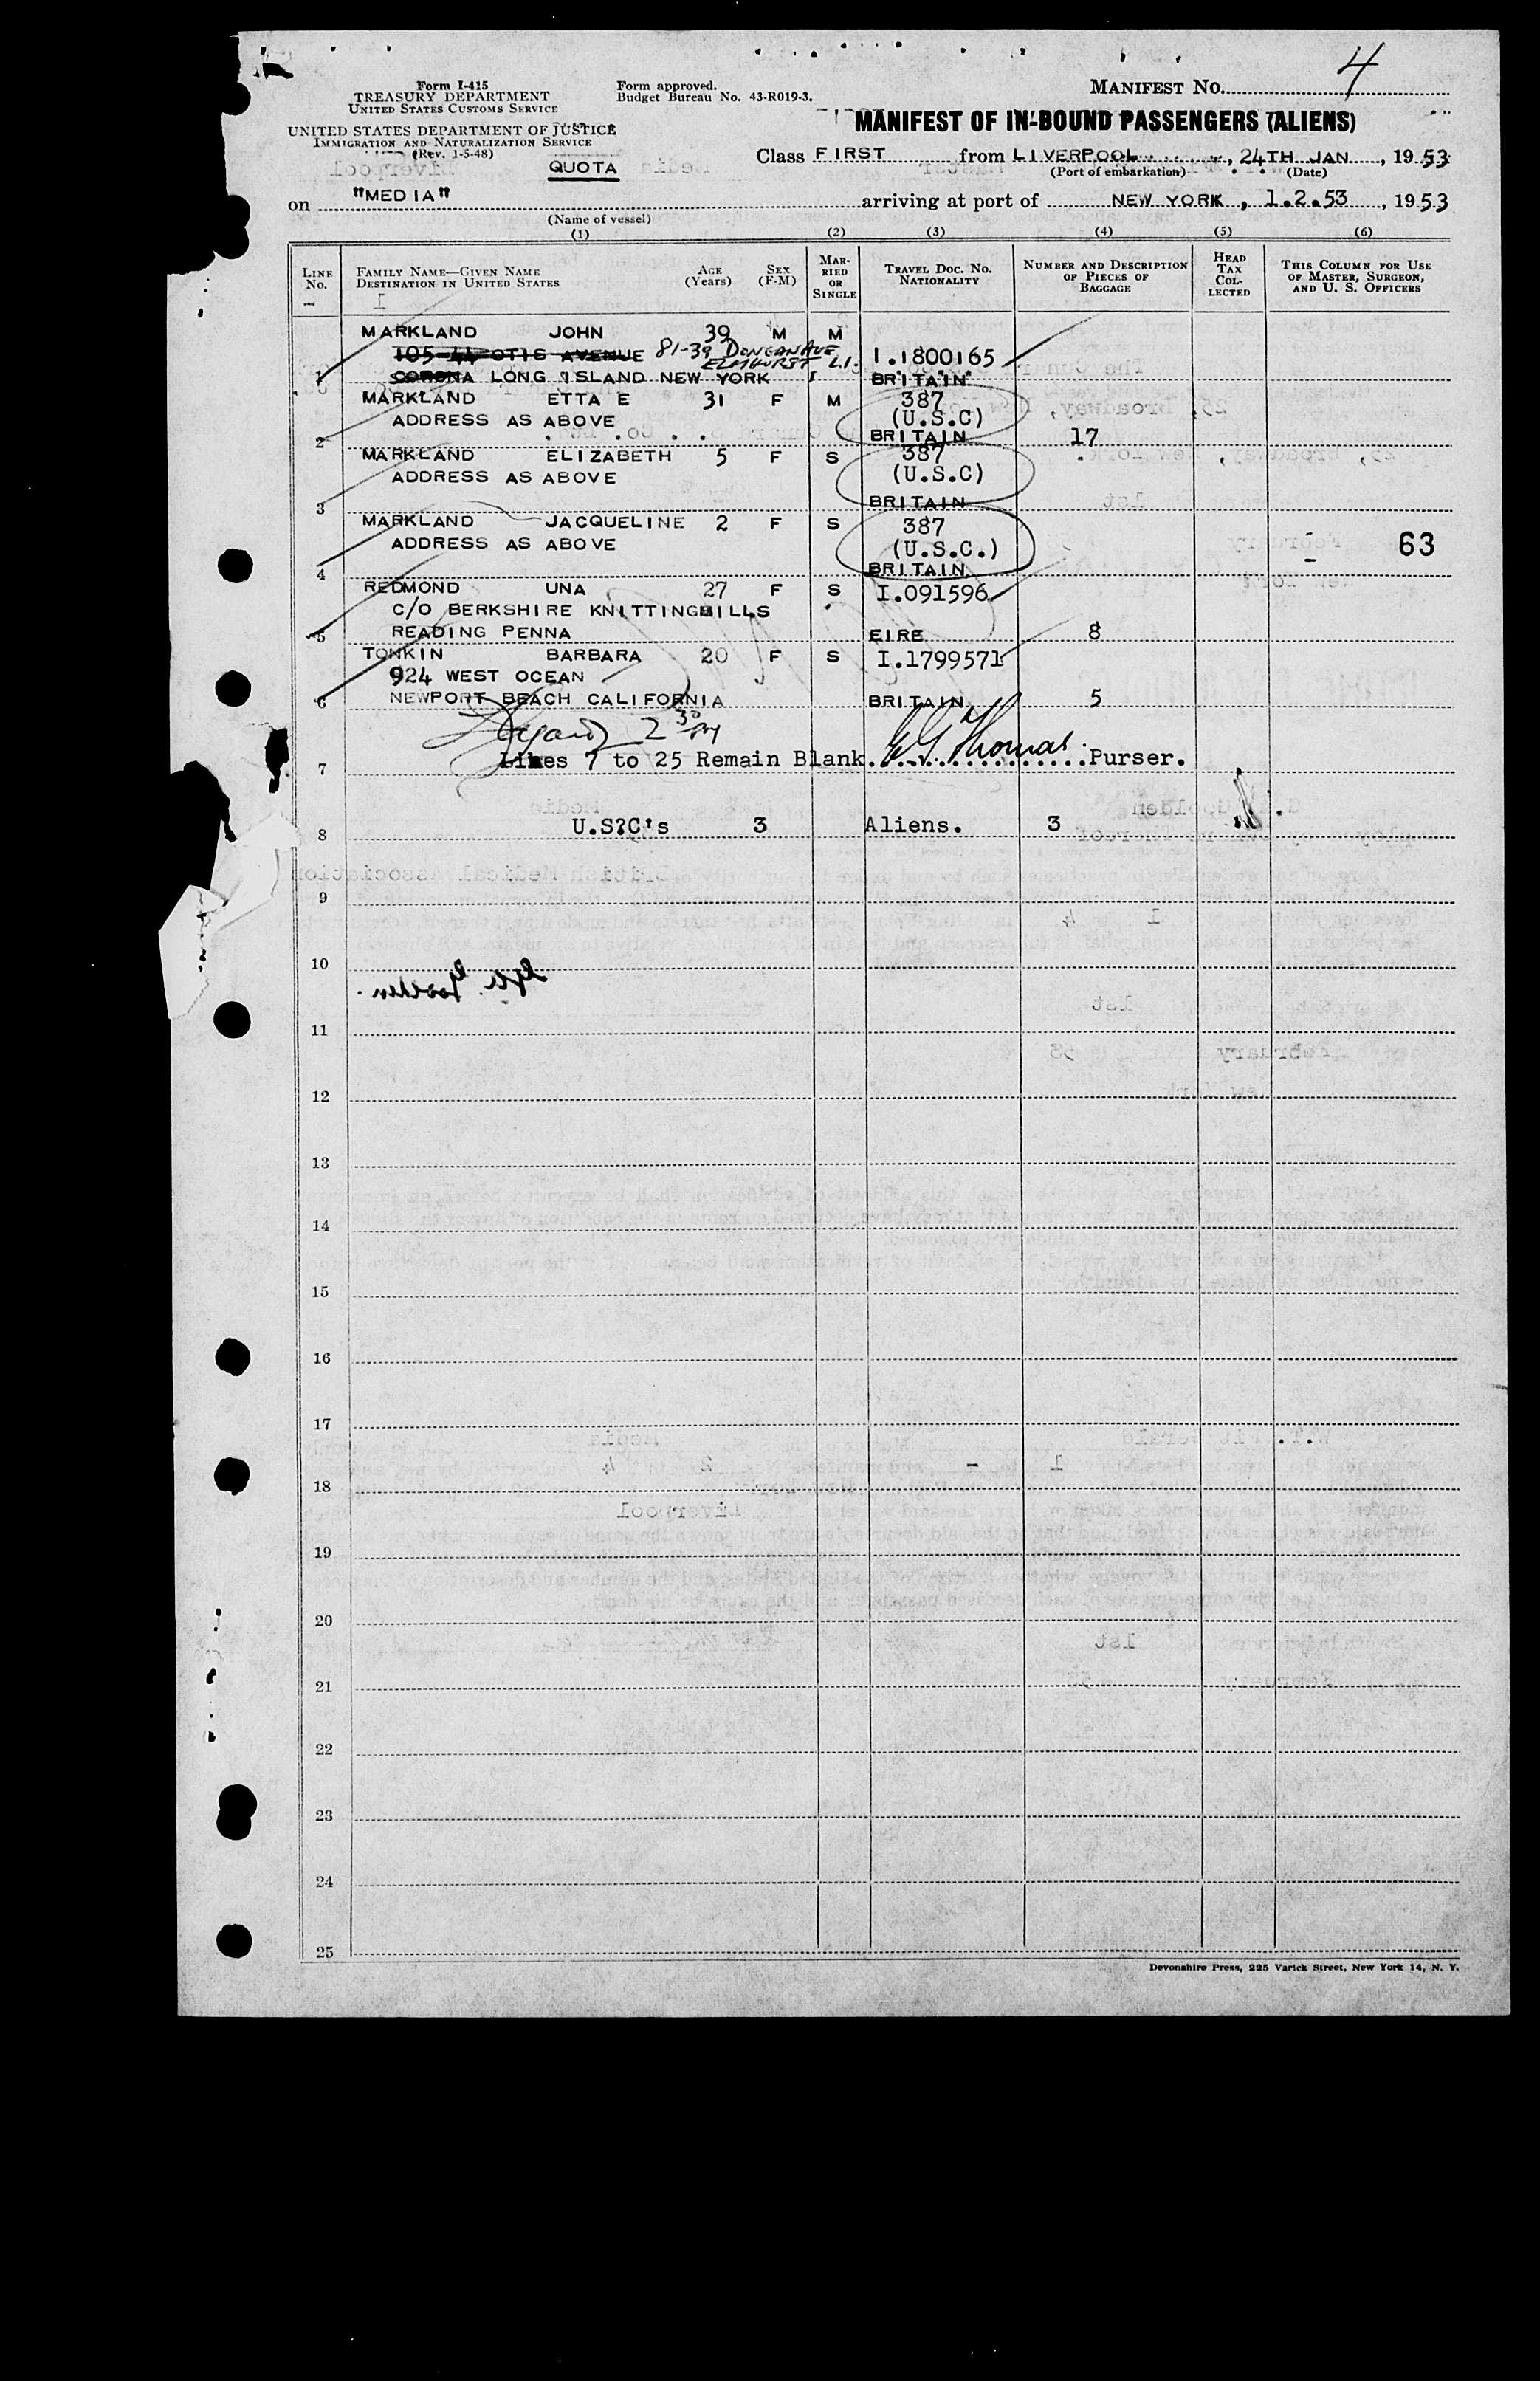 4
Form I-415
TREASURY DEPARTMENT
UNITED STATES CUSTOMS SERVICE
Form approved.
Budget Bureau No. 43-R019-3.
MANIFEST NO.
UNITED STATES DEPARTMENT OF JUSTICE
IMMIGRATION AND NATURALIZATION SERVICE
(Rev. 1-5-48)
QUOTA
MANIFEST OF IN-BOUND PASSENGERS (ALIENS)
Class FIRST from LIVERPOOL, 24TH JAN, 1953
(Port of embarkation) (Date)
on "MEDIA" arriving at port of NEW YORK, 1.2.53, 1953
(Name of vessel)
(1) (2) (3) (4) (5) (6)
LINE NO. FAMILY NAME—GIVEN NAME DESTINATION IN UNITED STATES AGE (Years) SEX (F-M) MARRIED OR SINGLE TRAVEL DOC. NO. NATIONALITY NUMBER AND DESCRIPTION OF PIECES OF BAGGAGE HEAD TAX COLLECTED THIS COLUMN FOR USE OF MASTER, SURGEON, AND U. S. OFFICERS
MARKLAND JOHN 39 M M
105-44 OTIS AVENUE 81-39 DONGAN AVE I.1800165
ELMHURST L.I.
1 CORONA LONG ISLAND NEW YORK BRITAIN
MARKLAND ETTA E 31 F M 387
ADDRESS AS ABOVE (U.S.C)
2 BRITAIN 17
MARKLAND ELIZABETH 5 F S 387
ADDRESS AS ABOVE (U.S.C)
3 BRITAIN
MARKLAND JACQUELINE 2 F S 387
ADDRESS AS ABOVE (U.S.C.) 63
4 BRITAIN
REDMOND UNA 27 F S I.091596
C/O BERKSHIRE KNITTINGMILLS
5 READING PENNA EIRE 8
TONKIN BARBARA 20 F S I.1799571
924 WEST OCEAN
6 NEWPORT BEACH CALIFORNIA BRITAIN 5
2 30 PM
7 Lines 7 to 25 Remain Blank. E G Thomas Purser.
8 U.S?C's 3 Aliens. 3
9
10
11
12
13
14
15
16
17
18
19
20
21
22
23
24
25
Devonshire Press, 225 Varick Street, New York 14, N. Y.